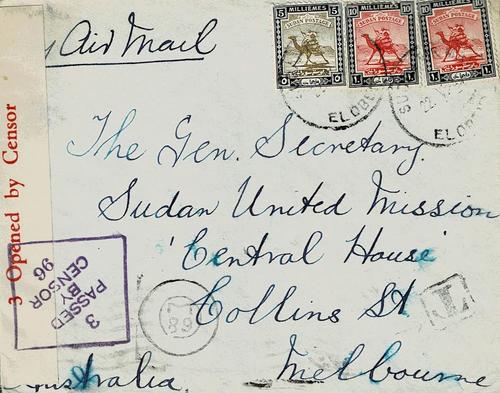 Air Mail
5 MILLIEMES 5
SUDAN POSTAGE
10 MILLIEMES 10
SUDAN POSTAGE
10 MILLIEMES 10
SUDAN POSTAGE
The Gen. Secretary.
Sudan United Mission
'Central House'
Collins St
Melbourne
Australia.
3 Opened by Censor
3
PASSED
BY
CENSOR
96
89
T